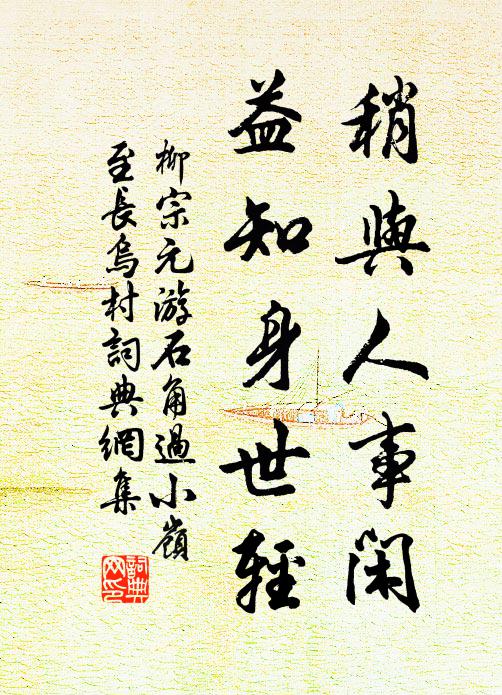 稍與人事閑
益知身世輕
柳宗元游石角過小嶺
至長烏村詞典網集
詞典網印